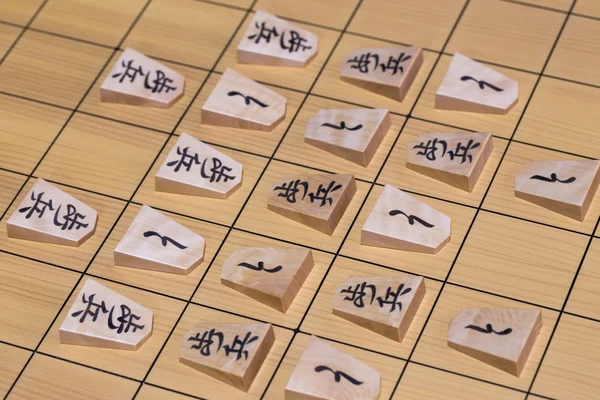 歩兵
歩兵
歩兵
と
と
と
歩兵
歩兵
と
歩兵
歩兵
と
と
と
歩兵
歩兵
と
歩兵
と